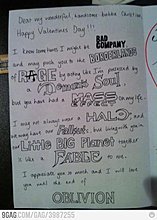 Dear my wonderful, handsome babba Christian,
Happy Valentines Day!!!
I know sometimes I might be BAD COMPANY
and may push you to the BORDERLANDS
RAGE by acting like I'm possessed by
Demon's Soul
but you have had a MASS EFFECT on my life.
I may not always wear a HALO and
we may have our Fallouts but living with you in
Little Big Planet together
is like a FABLE to me.
I appreciate you so much and I will love
you until the end of
OBLIVION
9GAG.COM/GAG/3987255